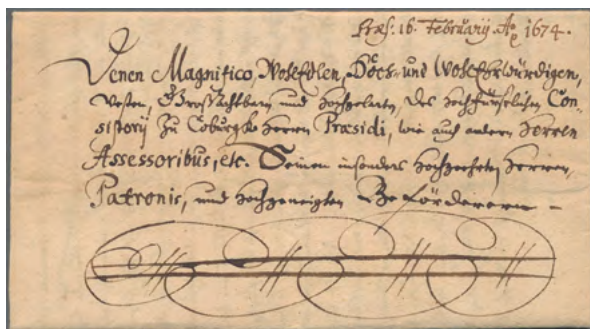 Præs. 16. Februarij. Ao. 1674.
Denen Magnifico, WohlEdlen, Hoch- und WohlEhrwürdigen,
Vesten, GroßAchtbarn und Hochgelarten, des Hochfürstlichen Con-
sistorij Zu Coburgk Herren Præsidi, wie auch andern Herren
Assessoribus, etc. Seinen insonders Hochgeehrten Herren,
Patronis, und Hochgeneigten Beförderern –